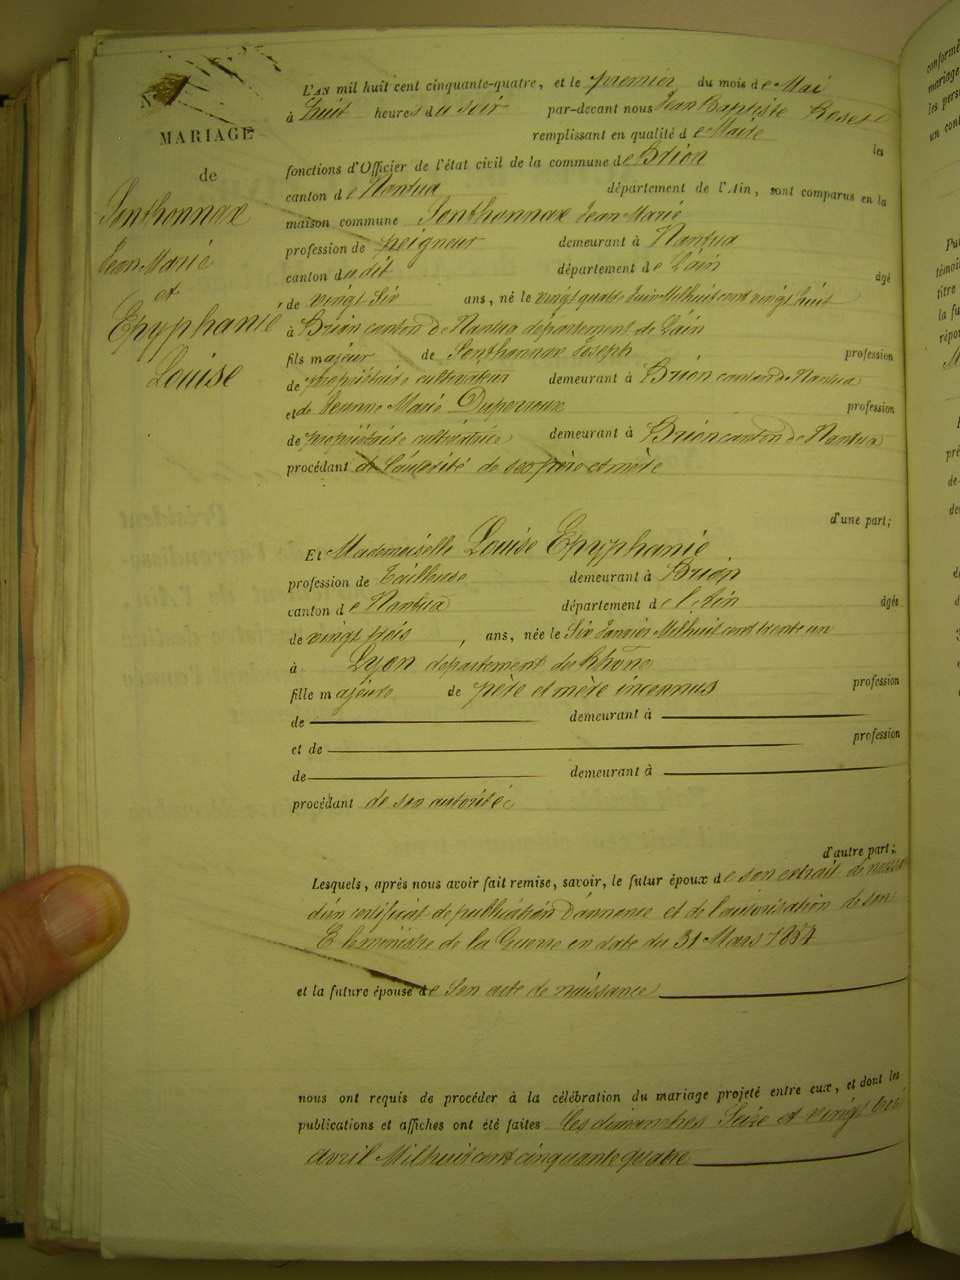 N
MARIAGE
de
Senthonnax
Jean Marie
et
Epyphanie
Louise
L'AN mil huit cent cinquante-quatre, et le premier du mois de Mai
à huit heures du soir par-devant nous Jean Baptiste
remplissant en qualité de Maire les
fonctions d'Officier de l'état civil de la commune de Brion
canton de Nantua département de l'Ain, sont comparus en la
maison commune Senthonnax Jean Marie
profession de peigneur demeurant à Nantua
canton du dit département de L'ain âgé
de vingt six ans, né le vingt quatre Juin Milhuit cent vingt huit
à Brion canton de Nantua département de L'ain
fils majeur de Senthonnax Joseph profession
de propriétaire cultivateur demeurant à Brion canton de Nantua
et de Jeanne Marie Duperieux profession
de propriétaire cultivatrice demeurant à Brion canton de Nantua
procédant de L'autorité de ses père et mère
d'une part;
Et Mademoiselle Louise Epyphanie
profession de Tailleuse demeurant à Brion
canton de Nantua département de l'Ain âgée
de vingt trois, ans, née le Six Janvier Milhuit cent trente un
à Lyon département du Rhône
fille majeure de père et mère inconnus profession
de demeurant à
et de profession
de demeurant à
procédant de son autorité
d'autre part;
Lesquels, après nous avoir fait remise, savoir, le futur époux de son extrait de naiss
d'un certificat de publication D'annonce et de l'autorisation de son
E le ministre de la Guerre en date du 31 Mars 1854
et la future épouse de Son acte de naissance
nous ont requis de procéder à la célébration du mariage projeté entre eux, et dont les
publications et affiches ont été faites les dimanches Seize et vingt trois
avril Milhuit cent cinquante quatre